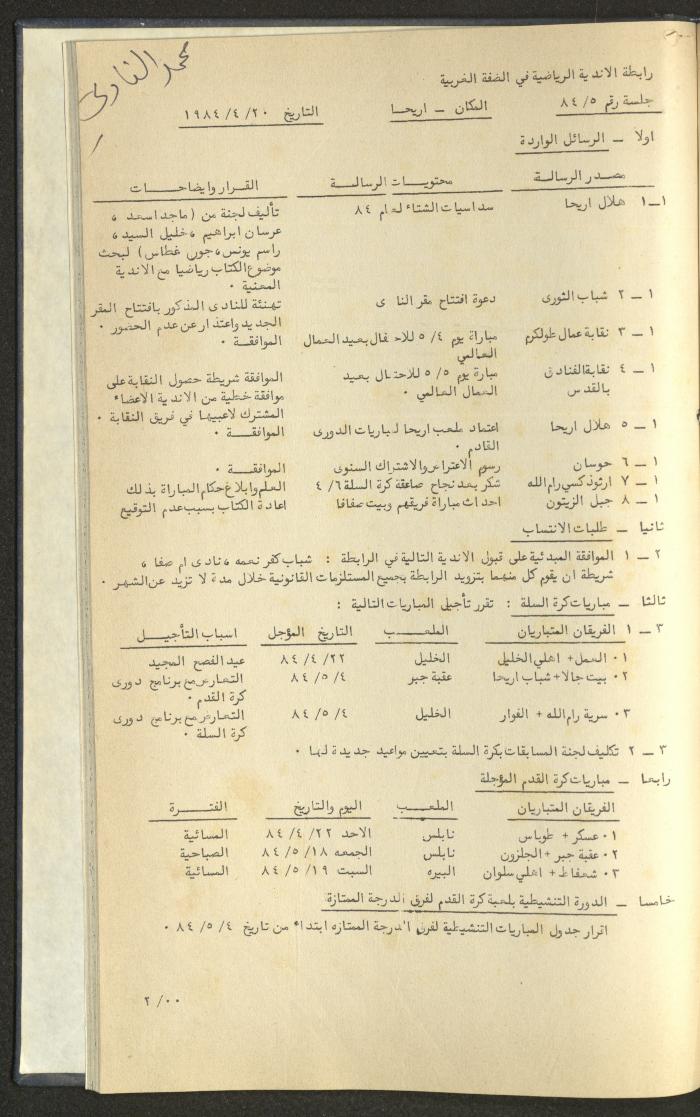 محمد النادي
رابطة الاندية الرياضية في الضفة الغربية
جلسة رقم ٨٤/٥ المكان ــ اريحا التاريخ ١٩٨٤/٤/٢٠
اولا ــ الرسائل الواردة
مصدر الرسالة محتويات الرسالة القرار وايضاحات
١ــ١ هلال اريحا سداسيات الشتاء لعام ٨٤ تأليف لجنة من (ماجد اسعد ،
عرسان ابراهيم ، خليل السيد ،
راسم يونس ، جورج غطاس) لبحث
موضوع الكتاب رياضيا مع الاندية
المعنية ٠
١ ــ ٢ شباب الثورى دعوة افتتاح مقر النادي تهنئة للنادى المذكور بافتتاح المقر
الجديد واعتذار عن عدم الحضور ٠
١ ــ ٣ نقابة عمال طولكرم مباراة يوم ٥/٤ للاحتفال بعيد العمال الموافقة ٠
العالمي
١ ــ ٤ نقابة الفنادق مبارة يوم ٥/٥ للاحتفال بعيد الموافقة شريطة حصول النقابة على
بالقدس العمال العالمي ٠ موافقة خطية من الاندية الاعضاء
المشترك لاعبيها في فريق النقابة ٠
١ ــ ٥ هلال اريحا اعتماد ملعب اريحا لمباريات الدورى الموافقة ٠
القادم ٠
١ ــ ٦ حوسان رسوم الاعتراض والاشتراك السنوى الموافقة ٠
١ ــ ٧ ارثوذكسي رام الله شكر بعد نجاح صاعقة كرة السلة ٤/٦ العلم وابلاغ حكام المباراة بذلك
١ ــ ٨ جبل الزيتون احداث مباراة فريقهم وبيت صفافا اعادة الكتاب بسبب عدم التوقيع
ثانيا ــ طلبات الانتساب
٢ ــ ١ الموافقة المبدئية على قبول الاندية التالية في الرابطة : شباب كفر نعمه ، نادى ام صفا ،
شريطة ان يقوم كل منهما بتزويد الرابطة بجميع المستلزمات القانونية خلال مدة لا تزيد عن الشهر ٠
ثالثا ــ مباريات كرة السلة : تقرر تأجيل المباريات التالية :
٣ ــ ١ الفريقان المتباريان الملعب التاريخ المؤجل اسباب التأجيل
١٠ العمل + اهلي الخليل الخليل ٨٤/٤/٢٢ عيد الفصح المجيد
٢٠ بيت جالا + شباب اريحا عقبة جبر ٨٤/٥/٤ التعارض مع برنامج دورى
كرة القدم ٠
٣٠ سرية رام الله + الفوار الخليل ٨٤/٥/٤ التعارض مع برنامج دورى
كرة السلة ٠
٣ ــ ٢ تكليف لجنة المسابقات بكرة السلة بتعيين مواعيد جديدة لها ٠
رابعا ــ مباريات كرة القدم المؤجلة
الفريقان المتباريان الملعب اليوم والتاريخ الفترة
١٠ عسكر + طوباس نابلس الاحد ٨٤/٤/٢٢ المسائية
٢٠ عقبة جبر + الجلزون نابلس الجمعه ٨٤/٥/١٨ الصباحية
٣٠ شعفاط + اهلي سلوان البيره السبت ٨٤/٥/١٩ المسائية
خامسا ــ الدورة التنشيطية بلعبة كرة القدم لفرق الدرجة الممتازة
اقرار جدول المباريات التنشيطية لفرق الدرجة الممتازه ابتداء من تاريخ ٨٤/٥/٤ ٠
٢/٠٠